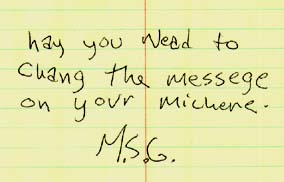 hay you Nead to
Chang the messege
on your michene.
M.S.G.